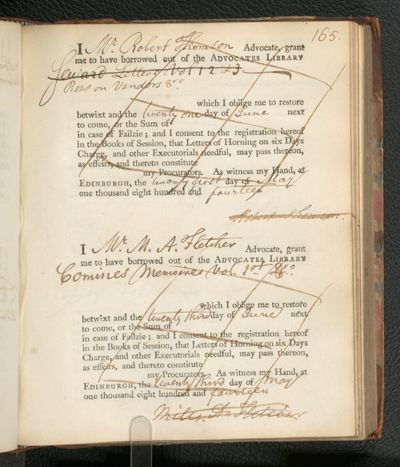 165.
I Mr. Robert Thomson Advocate, grant
me to have borrowed out of the ADVOCATES LIBRARY
Letters Vol 1 2 & 3
Ross on Vendors 8vo
which I oblige me to restore
betwixt and the twenty one day of June next
to come, or the Sum of
in case of Failzie; and I consent to the registration hereof
in the Books of Session, that Letters of Horning on six Days
Charge, and other Executorials needful, may pass thereon,
as effeirs, and thereto constitute
my Procurators. As witness my Hand, at
EDINBURGH, the twenty first day of May
one thousand eight hundred and fourteen
Robert Thomson.
I Mr. M. A. Fletcher Advocate, grant
me to have borrowed out of the ADVOCATES LIBRARY
Comines Memoires Vol. 1st 8vo.
which I oblige me to restore
betwixt and the twenty third day of June next
to come, or the Sum of
in case of Failzie; and I consent to the registration hereof
in the Books of Session, that Letters of Horning on six Days
Charge, and other Executorials needful, may pass thereon,
as effeirs, and thereto constitute
my Procurators. As witness my Hand, at
EDINBURGH, the twenty third day of May
one thousand eight hundred and fourteen
Fletcher